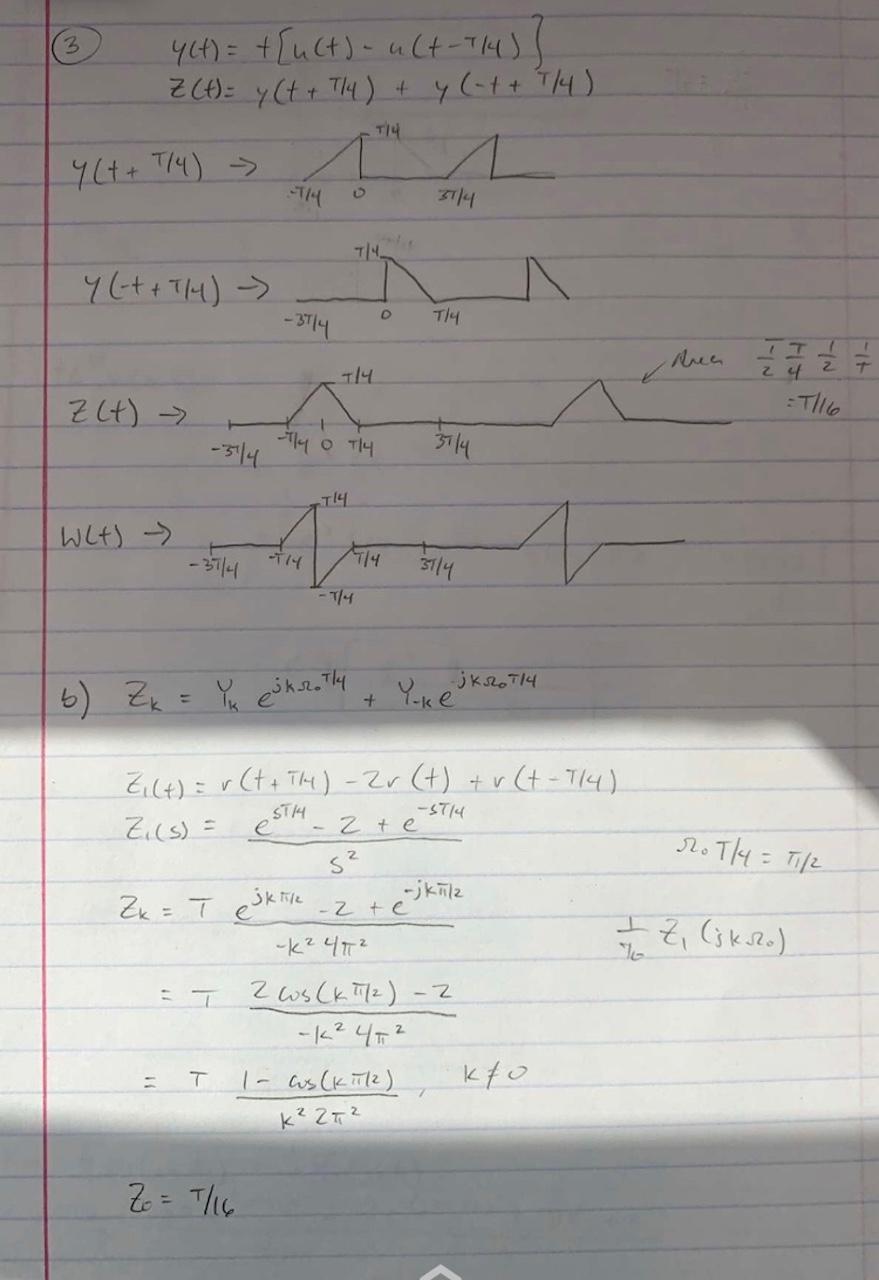 ③ y(t) = t[u(t) - u(t-T/4)]
Z(t) = y(t + T/4) + y(-t + T/4)
y(t + T/4) → T/4
-T/4 0 3T/4
y(-t + T/4) → T/4
-3T/4 0 T/4
Area 1/2 T/4 1/2 1/T
= T/16
Z(t) → T/4
-3T/4 -T/4 0 T/4 3T/4
W(t) → T/4
-3T/4 -T/4 T/4 3T/4
-T/4
b) Z_k = Y_k e^{jkΩ₀T/4} + Y_{-k} e^{jkΩ₀T/4}
Z₁(t) = r(t + T/4) - 2r(t) + r(t - T/4)
Z₁(s) = (e^{sT/4} - 2 + e^{-sT/4}) / s²
Ω₀T/4 = π/2
Z_k = T (e^{jkπ/2} - 2 + e^{-jkπ/2}) / (-k² 4π²)
Z₁(jkΩ₀)
= T (2 cos(kπ/2) - 2) / (-k² 4π²)
= T (1 - cos(kπ/2)) / (k² 2π²), k ≠ 0
Z₀ = T/16